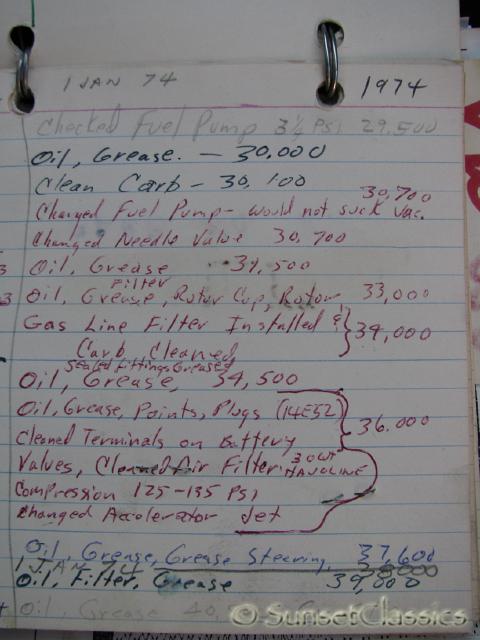 1 JAN 74 1974
Checked Fuel Pump 3½ PSI 29,500
Oil, Grease. — 30,000
Clean Carb - 30,100
30,700
Changed Fuel Pump - would not suck vac.
Changed Needle Valve 30,700
Oil, Grease 31,500
Filter
Oil, Grease, Rotor Cap, Rotor, 33,000
Gas Line Filter Installed & } 34,000
Carb Cleaned
Sealed fittings Greased
Oil, Grease, 34,500
Oil, Grease, Points, Plugs (14E52) 36,000
Cleaned Terminals on Battery
Valves, Cleaned Air Filter 30WT
HAVOLINE
Compression 125-135 PSI
Changed Accelerator Jet
Oil, Grease, Grease Steering, 37,600
1 JAN 74
Oil, Filter, Grease 39,000
Oil, Grease 40,
© SunsetClassics